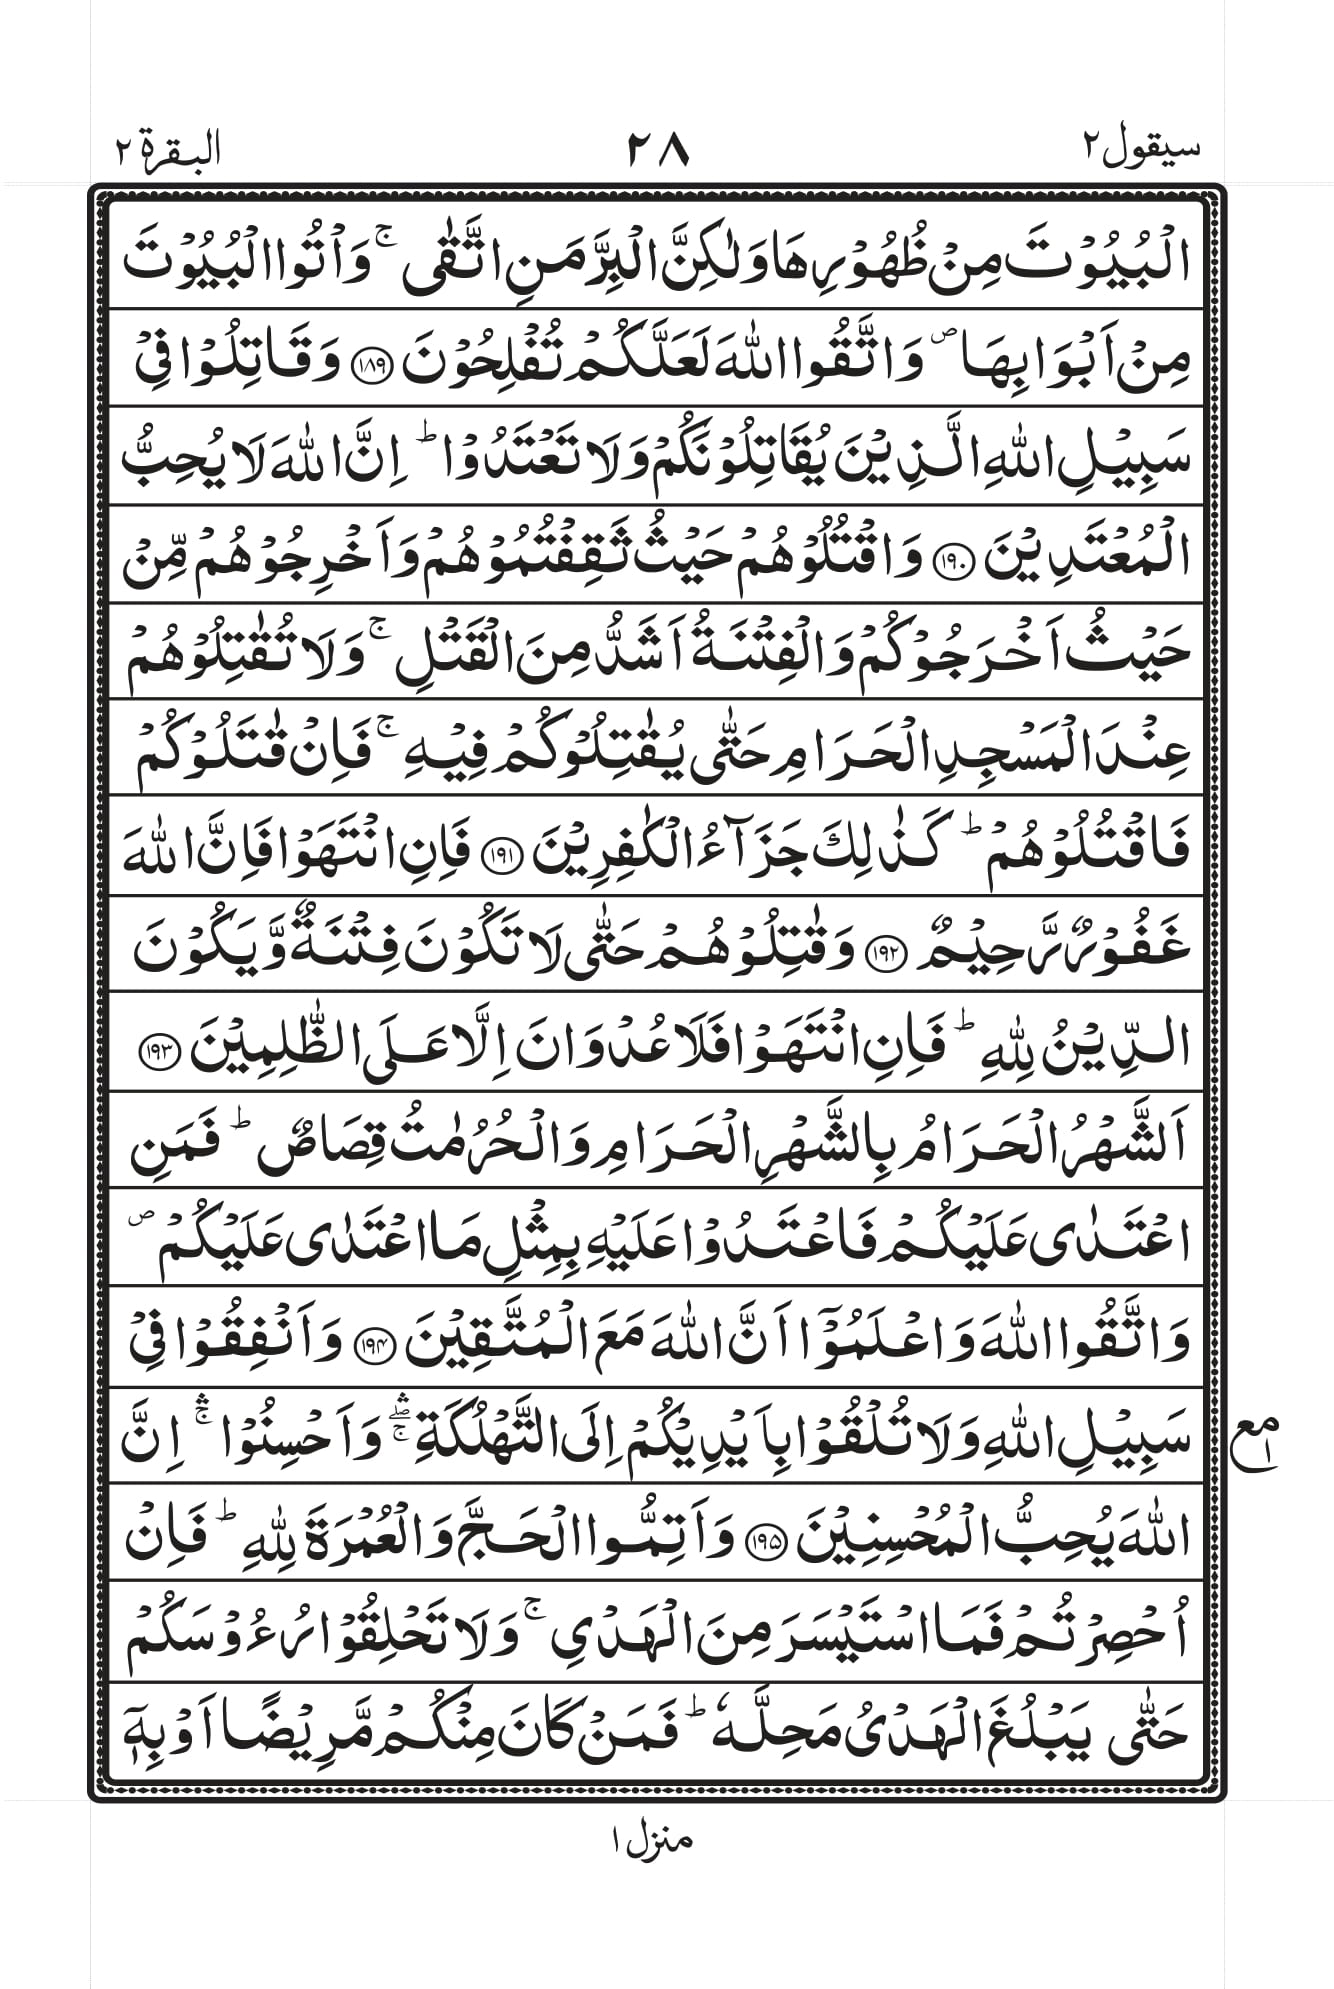 سيقول ٢
٢٨
البقرة ٢
الۡبُيُوۡتَ مِنۡ ظُهُوۡرِهَا وَلٰكِنَّ الۡبِرَّ مَنِ اتَّقٰى ۚ وَاۡتُوا الۡبُيُوۡتَ
مِنۡ اَبۡوَابِهَا ۖ وَاتَّقُوا اللّٰهَ لَعَلَّكُمۡ تُفۡلِحُوۡنَ ﴿۱۸۹﴾ وَقَاتِلُوۡا فِىۡ
سَبِيۡلِ اللّٰهِ الَّذِيۡنَ يُقَاتِلُوۡنَكُمۡ وَلَا تَعۡتَدُوۡا ؕ اِنَّ اللّٰهَ لَا يُحِبُّ
الۡمُعۡتَدِيۡنَ ﴿۱۹۰﴾ وَاقۡتُلُوۡهُمۡ حَيۡثُ ثَقِفۡتُمُوۡهُمۡ وَاَخۡرِجُوۡهُمۡ مِّنۡ
حَيۡثُ اَخۡرَجُوۡكُمۡ وَالۡفِتۡنَةُ اَشَدُّ مِنَ الۡقَتۡلِ ۚ وَلَا تُقٰتِلُوۡهُمۡ
عِنۡدَ الۡمَسۡجِدِ الۡحَرَامِ حَتّٰى يُقٰتِلُوۡكُمۡ فِيۡهِ ۚ فَاِنۡ قٰتَلُوۡكُمۡ
فَاقۡتُلُوۡهُمۡ ؕ كَذٰلِكَ جَزَآءُ الۡكٰفِرِيۡنَ ﴿۱۹۱﴾ فَاِنِ انۡتَهَوۡا فَاِنَّ اللّٰهَ
غَفُوۡرٌ رَّحِيۡمٌ ﴿۱۹۲﴾ وَقٰتِلُوۡهُمۡ حَتّٰى لَا تَكُوۡنَ فِتۡنَةٌ وَّيَكُوۡنَ
الدِّيۡنُ لِلّٰهِ ؕ فَاِنِ انۡتَهَوۡا فَلَا عُدۡوَانَ اِلَّا عَلَى الظّٰلِمِيۡنَ ﴿۱۹۳﴾
اَلشَّهۡرُ الۡحَرَامُ بِالشَّهۡرِ الۡحَرَامِ وَالۡحُرُمٰتُ قِصَاصٌ ؕ فَمَنِ
اعۡتَدٰى عَلَيۡكُمۡ فَاعۡتَدُوۡا عَلَيۡهِ بِمِثۡلِ مَا اعۡتَدٰى عَلَيۡكُمۡ ۖ
وَاتَّقُوا اللّٰهَ وَاعۡلَمُوۡٓا اَنَّ اللّٰهَ مَعَ الۡمُتَّقِيۡنَ ﴿۱۹۴﴾ وَاَنۡفِقُوۡا فِىۡ
سَبِيۡلِ اللّٰهِ وَلَا تُلۡقُوۡا بِاَيۡدِيۡكُمۡ اِلَى التَّهۡلُكَةِ ۛۖۚ وَاَحۡسِنُوۡا ۛۚ اِنَّ
مع ١
اللّٰهَ يُحِبُّ الۡمُحۡسِنِيۡنَ ﴿۱۹۵﴾ وَاَتِمُّوا الۡحَجَّ وَالۡعُمۡرَةَ لِلّٰهِ ؕ فَاِنۡ
اُحۡصِرۡتُمۡ فَمَا اسۡتَيۡسَرَ مِنَ الۡهَدۡىِ ۚ وَلَا تَحۡلِقُوۡا رُءُوۡسَكُمۡ
حَتّٰى يَبۡلُغَ الۡهَدۡىُ مَحِلَّهٗ ؕ فَمَنۡ كَانَ مِنۡكُمۡ مَّرِيۡضًا اَوۡ بِهٖۤ
منزل ١